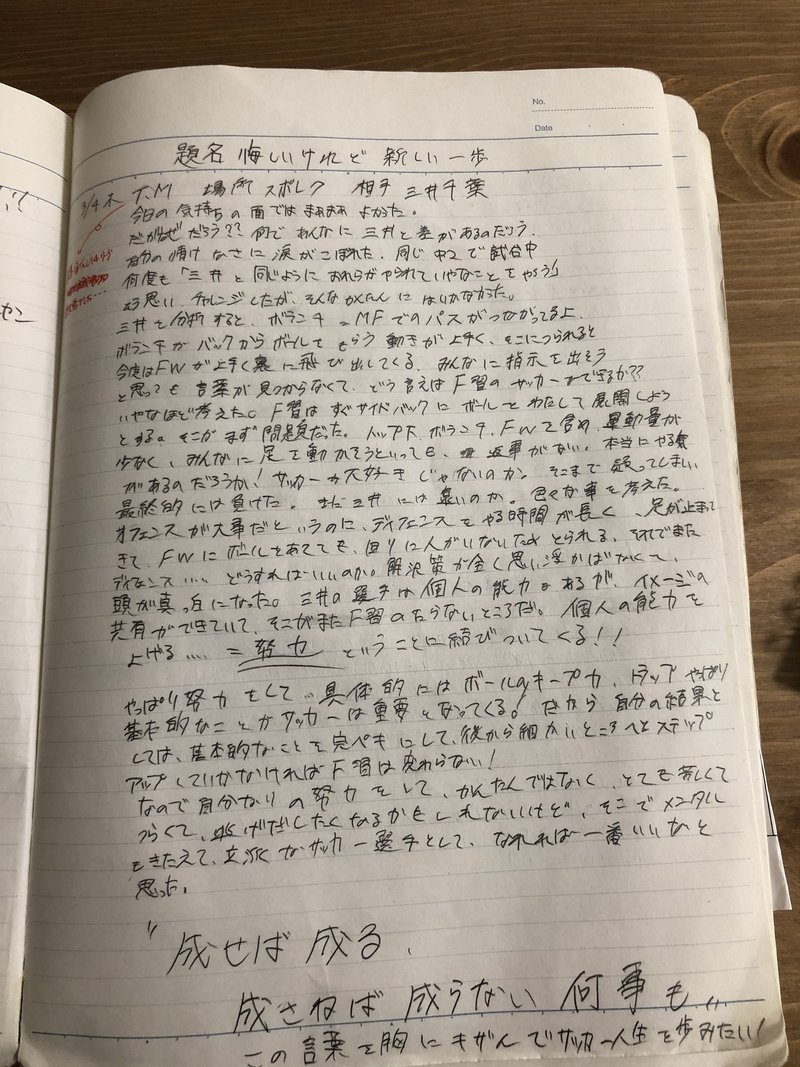 No.
Date
題名 悔しいけれど 新しい一歩
3/4 木 T.M 場所 スポレク 相手 三井千葉
今日の気持ちの面ではまぁまぁよかった。
だがなぜだろう?? 何であんなに三井と差があるのだろう.
自分の情けなさに涙がこぼれた. 同じ中2で試合中
何度も「三井と同じようにおれらがやられていやなことをやろう」
そう思い チャレンジしたが、そんなかんたんにはいかなかった。
三井を分析すると、ボランチ=MFでのパスがつながってるよ.
ボランチがバックからボールをもらう動きが上手く、そこにつられると
今度はFWが上手く裏に飛び出してくる. みんなに指示を出そう
と思っても言葉が見つからなくて、どう言えばF習のサッカーができるか??
いやなほど考えた。F習はすぐサイドバックにボールをわたして展開しよう
とする。そこがまず問題だった。トップ下、ボランチ、FWを含め、運動量が
少なく、みんなに足を動かそうといっても、返事がない。本当にやる気
があるのだろうか! サッカーが大好きじゃないのか。そこまで疑ってしまい
最終的には負けた。まだ三井には遠いのか。色々な事を考えた。
オフェンスが大事だというのに、ディフェンスをやる時間が長く、足が止まって
きて、FWにボールをあてても、回りに人がいないためとられる、それでまた
ディフェンス…. どうすればいいのか。解決策が全く思い浮かばなくて、
頭が真っ白になった。三井の選手は個人の能力もあるが、イメージの
共有ができていて、そこがまたF習のたらないところだ。個人の能力を
上げる…. = 努力 ということに結びついてくる!!
やっぱり努力をして、具体的にはボールのキープ力、トラップ やっぱり
基本的なことがサッカーは重要となってくる! だから自分の結果と
しては、基本的なことを完ペキにして、後から細かいところへとステップ
アップしていかなければF習は変わらない!
なので自分なりの努力をして、かんたんではなく、とても苦しくて
つらくて、逃げだしたくなるかもしれないけど、そこでメンタル
もきたえて、立派なサッカー選手として、なれれば一番いいなと
思った.
"成せば成る、
成さねば成らない 何事も"
この言葉を胸にキザんでサッカー人生を歩みたい!